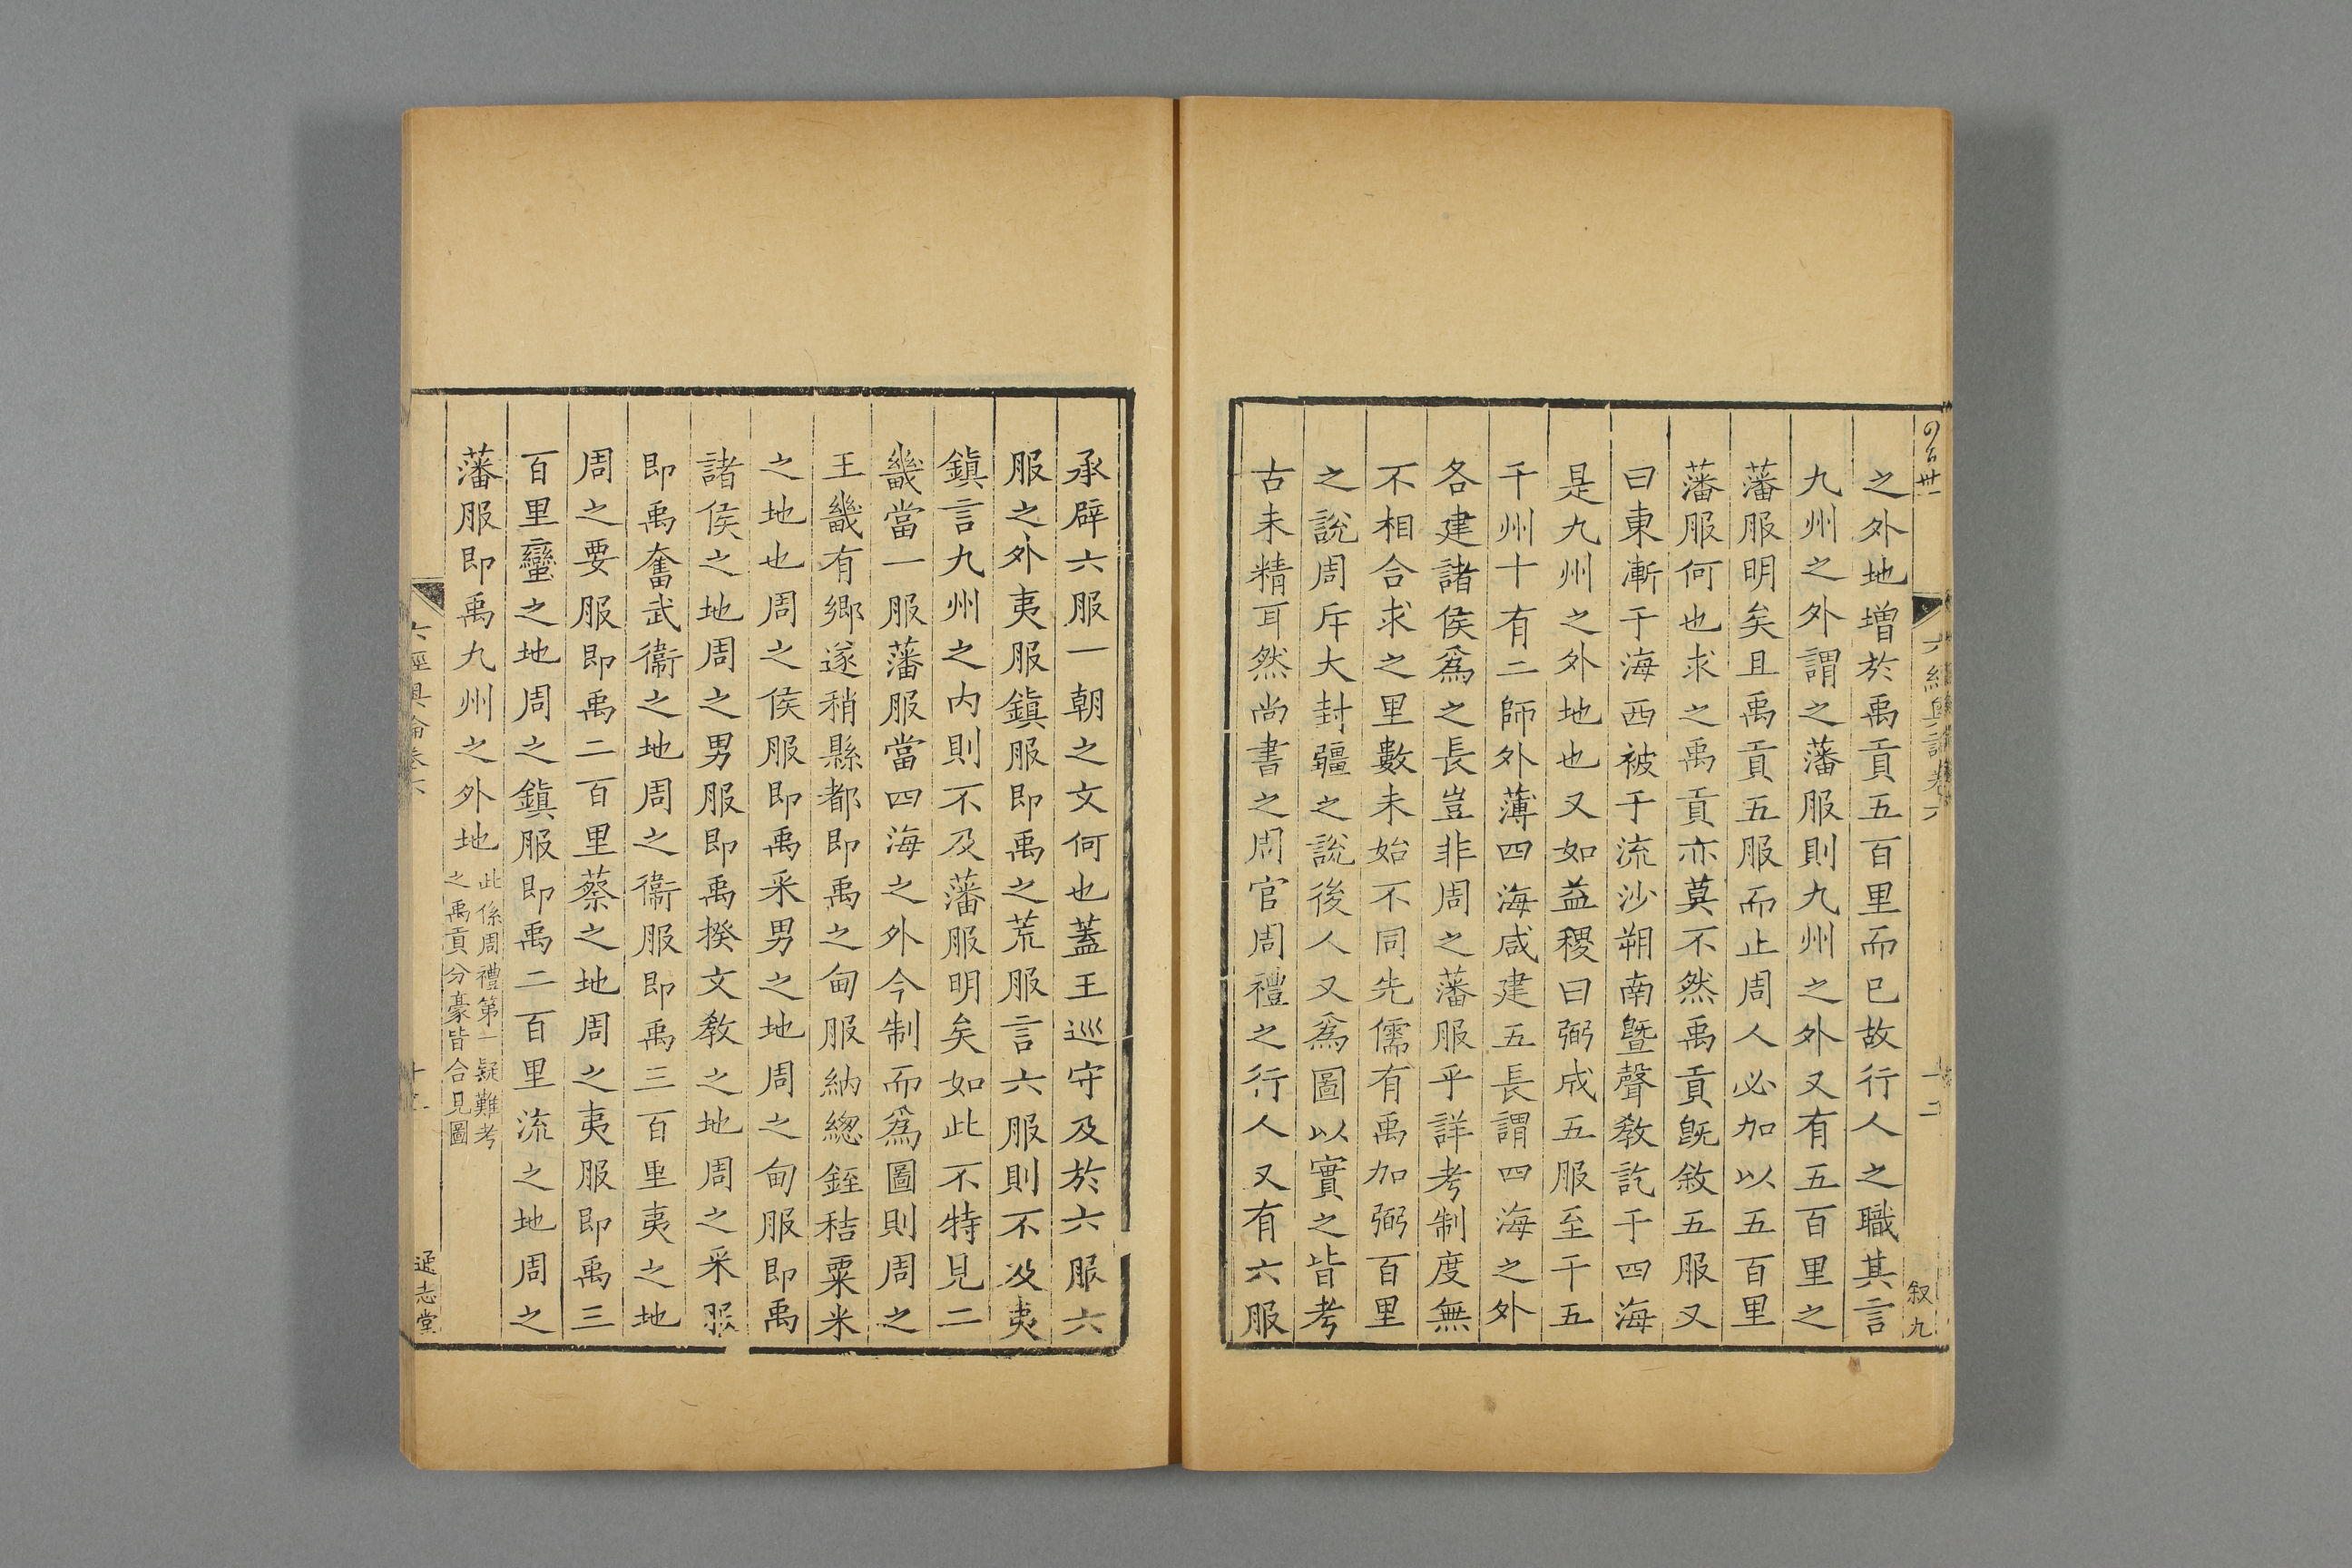 之外地增於禹貢五百里而已故行人之職其言
九州之外謂之藩服則九州之外又有五百里之
藩服明矣且禹貢五服而止周人必加以五百里
藩服何也求之禹貢亦莫不然禹貢旣敘五服又
曰東漸于海西被于流沙朔南曁聲敎訖于四海
是九州之外地也又如益稷曰弼成五服至于五
千州十有二師外薄四海咸建五長謂四海之外
各建諸侯爲之長豈非周之藩服乎詳考制度無
不相合求之里數未始不同先儒有禹加弼百里
之說周斥大封疆之說後人又爲圖以實之皆考
古未精耳然尚書之周官周禮之行人又有六服
承辟六服一朝之文何也蓋王巡守及於六服六
服之外夷服鎭服即禹之荒服言六服則不及夷
鎭言九州之内則不及藩服明矣如此不特見二
畿當一服藩服當四海之外今制而爲圖則周之
王畿有鄉遂稍縣都即禹之甸服納緫銍秸粟米
之地也周之侯服即禹采男之地周之甸服即禹
諸侯之地周之男服即禹揆文敎之地周之采服
即禹奮武衞之地周之衞服即禹三百里夷之地
周之要服即禹二百里蔡之地周之夷服即禹三
百里蠻之地周之鎭服即禹二百里流之地周之
藩服即禹九州之外地
此係周禮第一疑難考
之禹貢分豪皆合見圖
通志堂